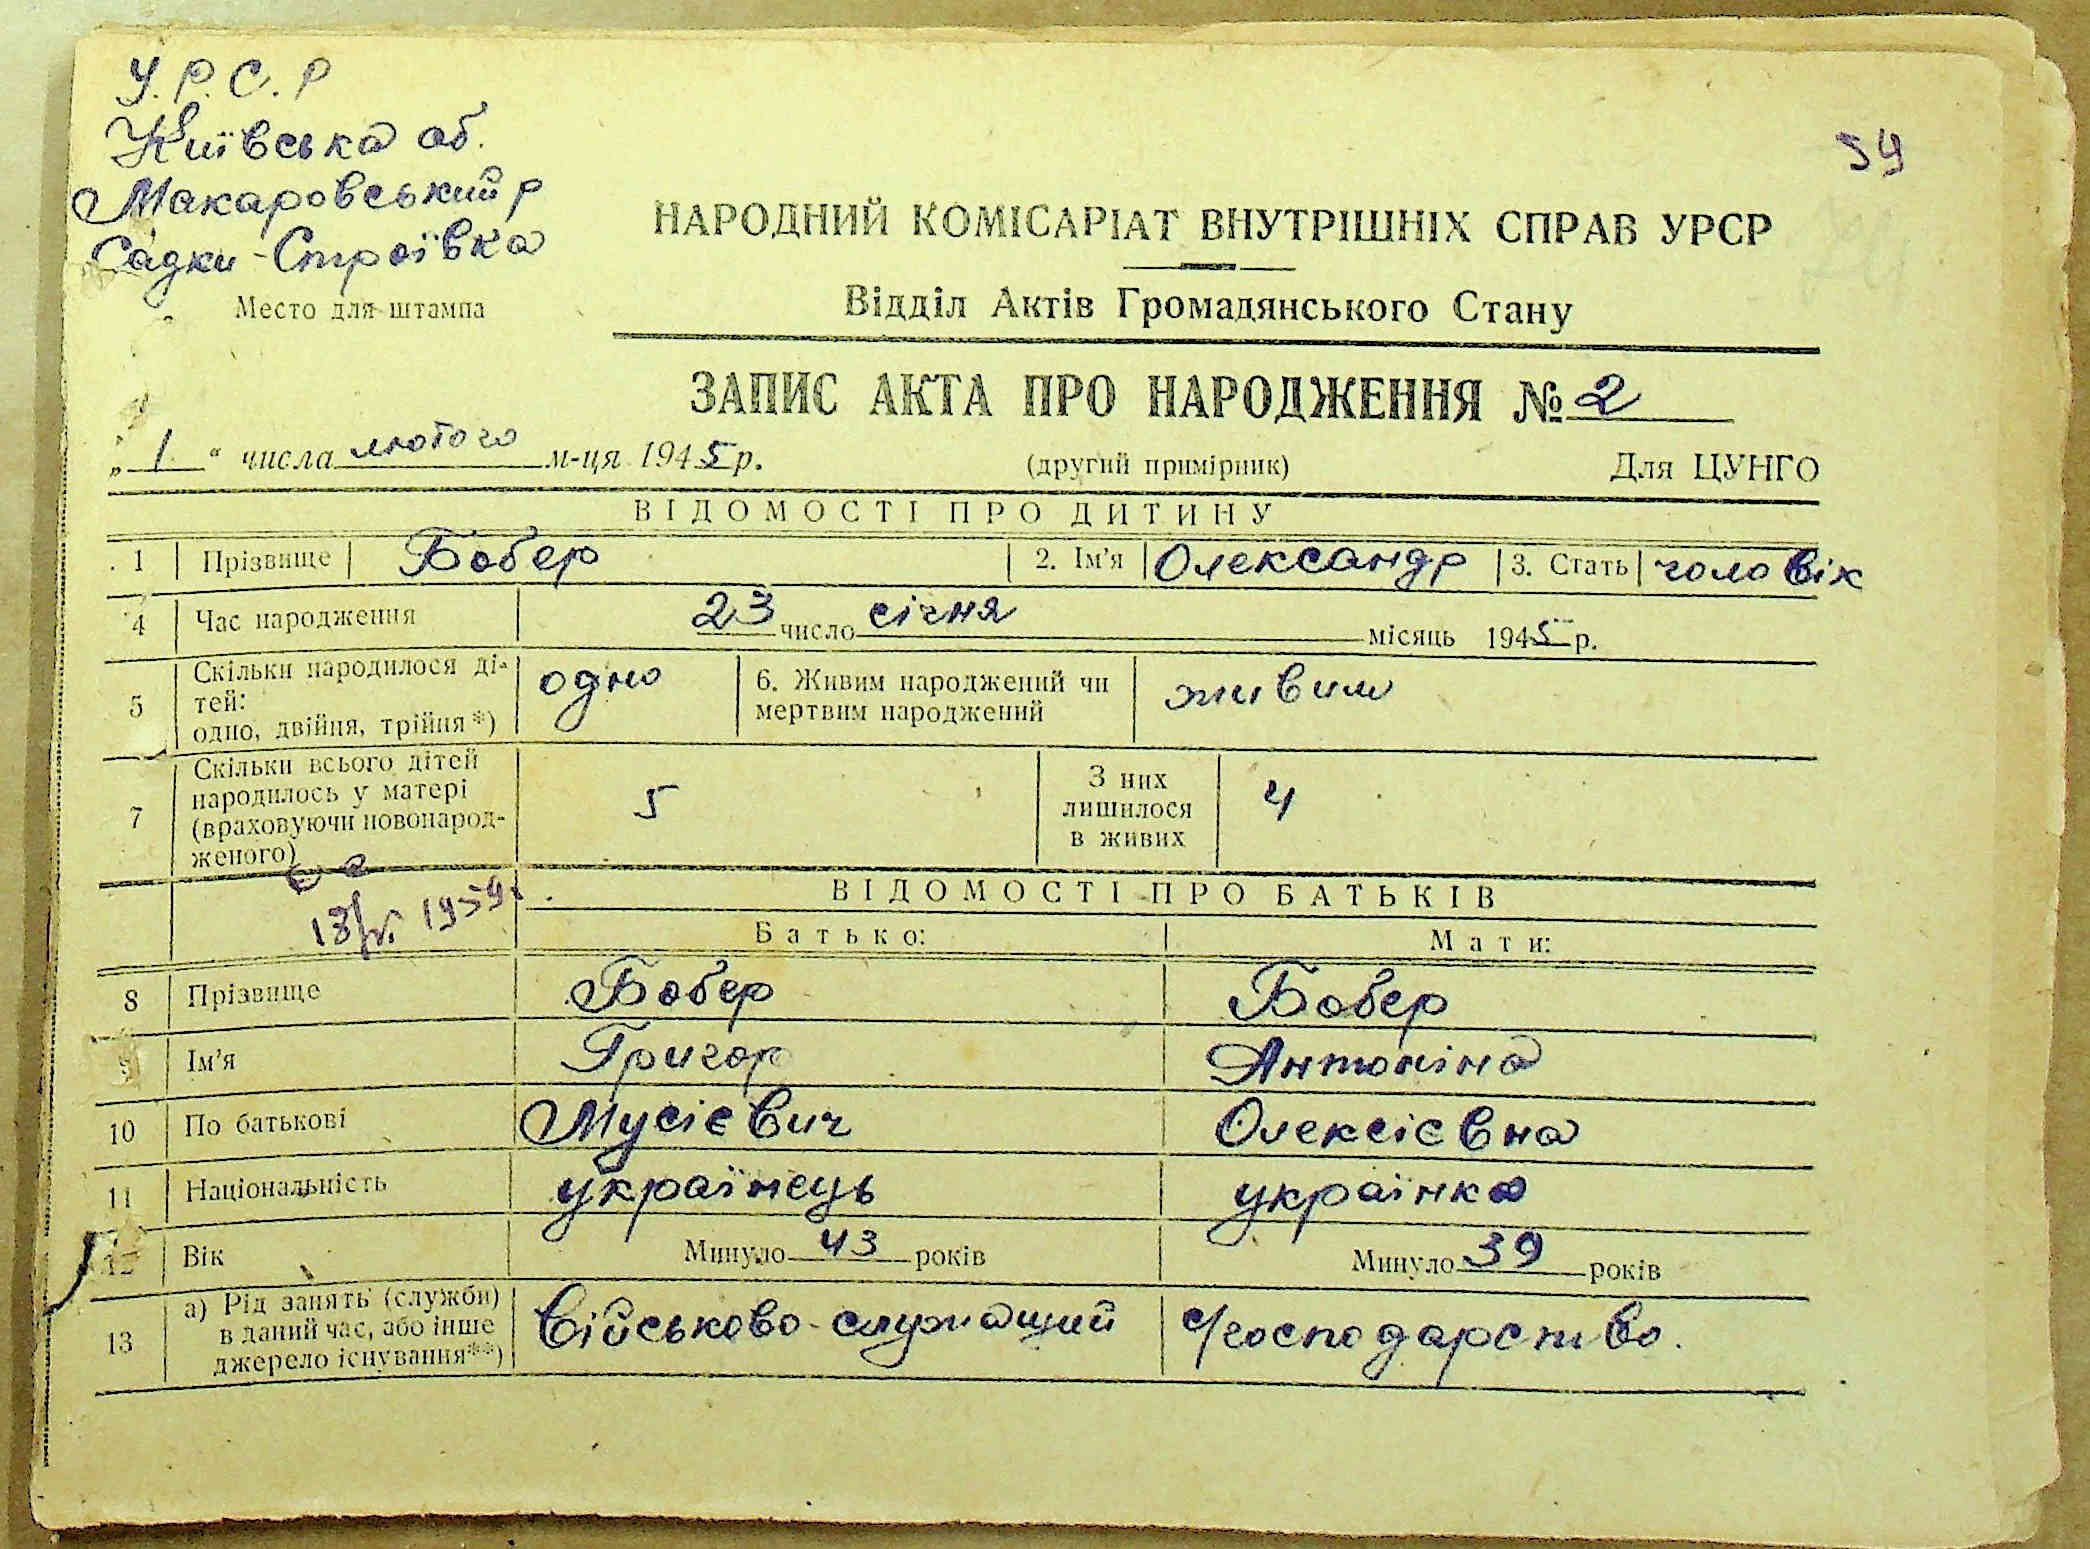 У.Р.С.Р
Київська об.
Макаровський р
Садки-Строївка
Место для штампа
54
НАРОДНИЙ КОМІСАРІАТ ВНУТРІШНІХ СПРАВ УРСР
Відділ Актів Громадянського Стану
ЗАПИС АКТА ПРО НАРОДЖЕННЯ № 2
„ 1 “ числа лютого м-ця 1945 р. (другий примірник) Для ЦУНГО
ВІДОМОСТІ ПРО ДИТИНУ
1 Прізвище Бобер 2. Ім'я Олександр 3. Стать чоловік
4 Час народження 23 число січня місяць 1945 р.
5 Скільки народилося ді-
тей:
одно, двійня, трійня*) одно 6. Живим народжений чи
мертвим народжений живим
7 Скільки всього дітей
народилось у матері
(враховуючи новонарод-
женого) 5 З них
лишилося
в живих 4
ВІДОМОСТІ ПРО БАТЬКІВ
Батько: Мати:
8 Прізвище Бобер Бобер
9 Ім'я Григор Антоніна
10 По батькові Мусієвич Олексієвна
11 Національність українець українка
12 Вік Минуло 43 років Минуло 39 років
13 а) Рід занять (служби)
в даний час, або інше
джерело існування**) Військово-служащий с/господарство.